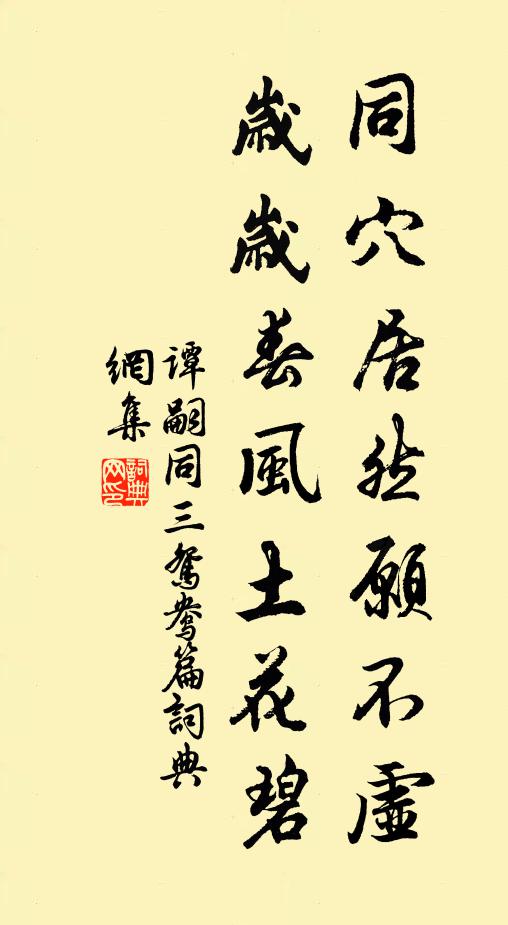 同穴居然願不虛
歲歲春風土花碧
譚嗣同三鴛鴦篇詞典
網集
詞典網印